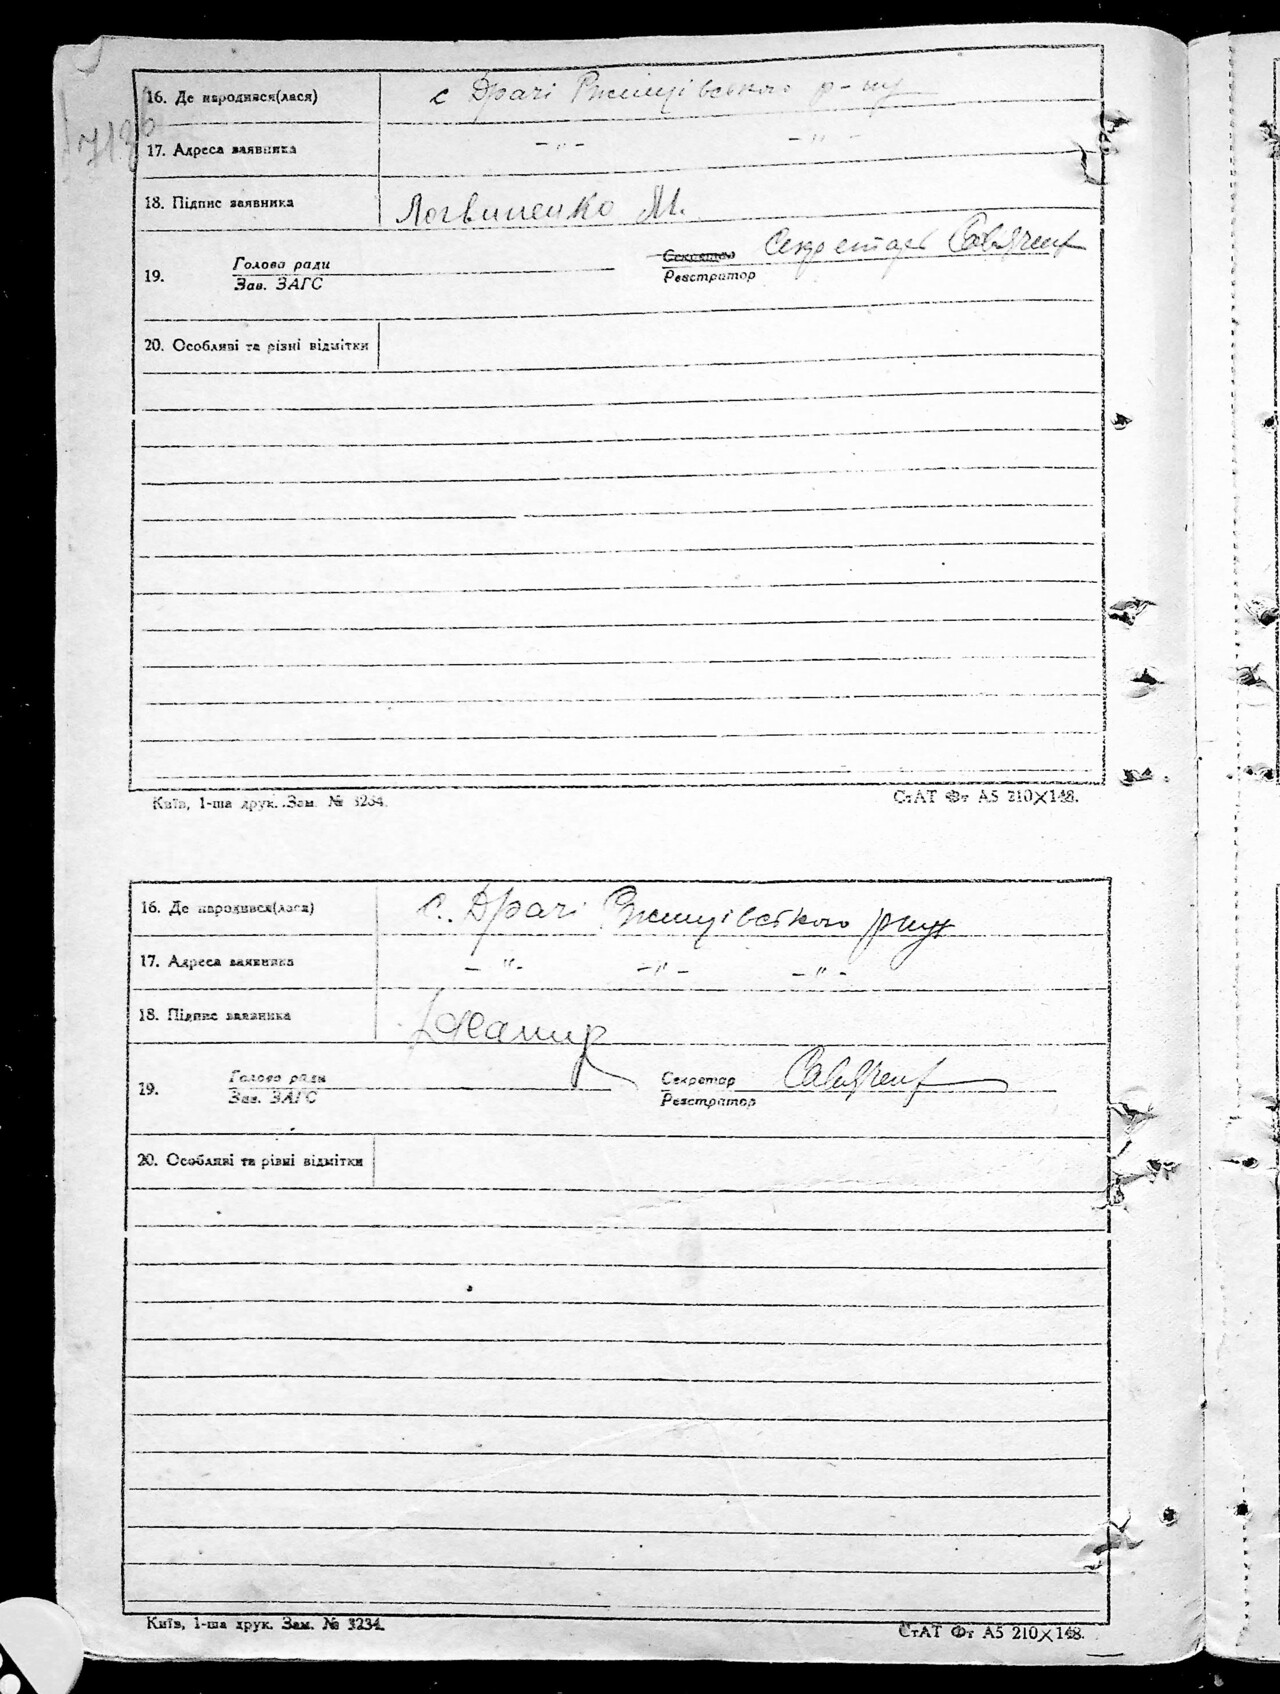 16. Де народився(лася) с Драчі Ржищівського р-ну
17. Адреса заявника -"- -"-
18. Підпис заявника Логвиненко М.
Секретарь
19. Голова ради Секретар
Зав. ЗАГС Реєстратор
20. Особливі та різні відмітки
Київ, 1-ша друк. Зам. № 3234. СтАТ Фт А5 210×148.
16. Де народився(лася) с. Драчі Ржищівського рну
17. Адреса заявника -"- -"- -"-
18. Підпис заявника
19. Голова ради Секретар
Зав. ЗАГС Реєстратор
20. Особливі та різні відмітки
Київ, 1-ша друк. Зам. № 3234. СтАТ Фт А5 210×148.